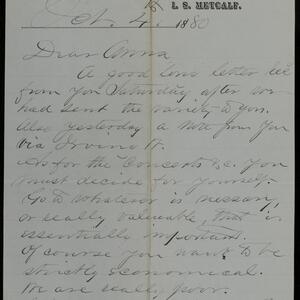 L. S. METCALF.
Oct. 4. 1880
Dear Anna
A good long letter rec'd
from you Saturday after we
had sent the variety to you.
Also yesterday a note from you
via Irving H.
As for the Concerts &c. you
must decide for yourself.
Go to whatever is necessary,
or really valuable, that is
essentially important.
Of course you want to be
strictly economical.
We are really poor.